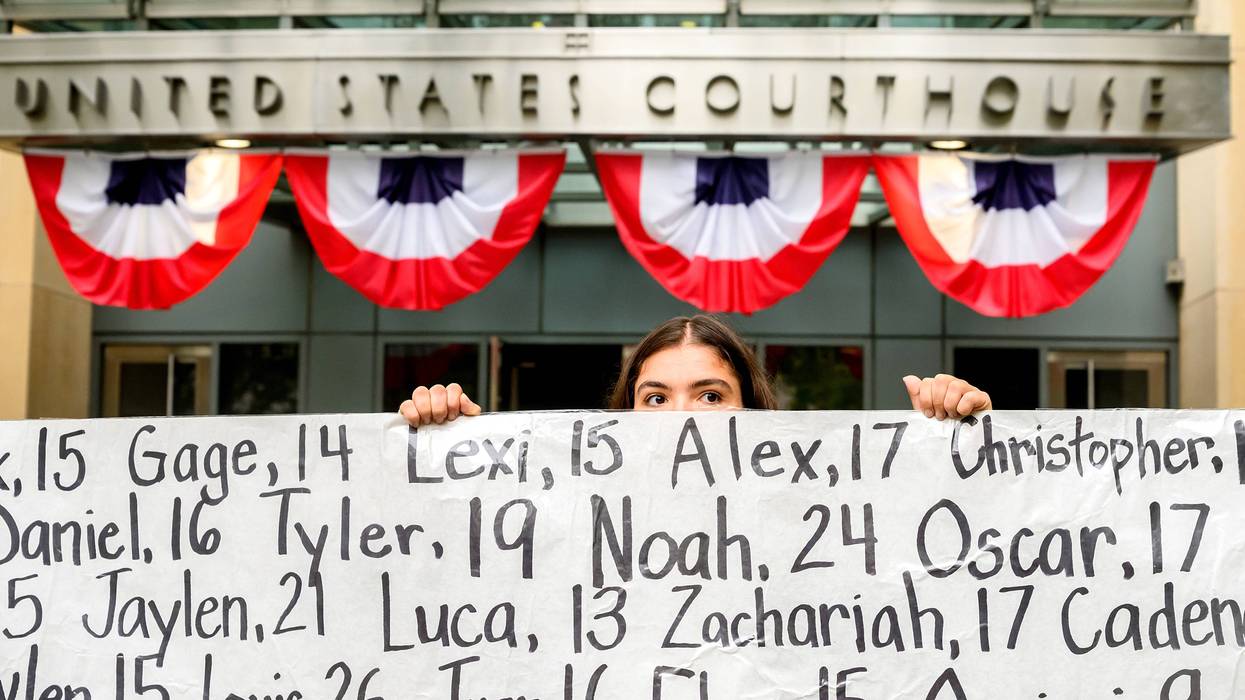 UNITED STATES COURTHOUSE
15 Gage, 14 Lexi, 15 Alex, 17 Christopher,
Daniel, 16 Tyler, 19 Noah, 24 Oscar, 17
5 Jaylen, 21 Luca, 13 Zachariah, 17 Caden
15 Louis 26 16 15